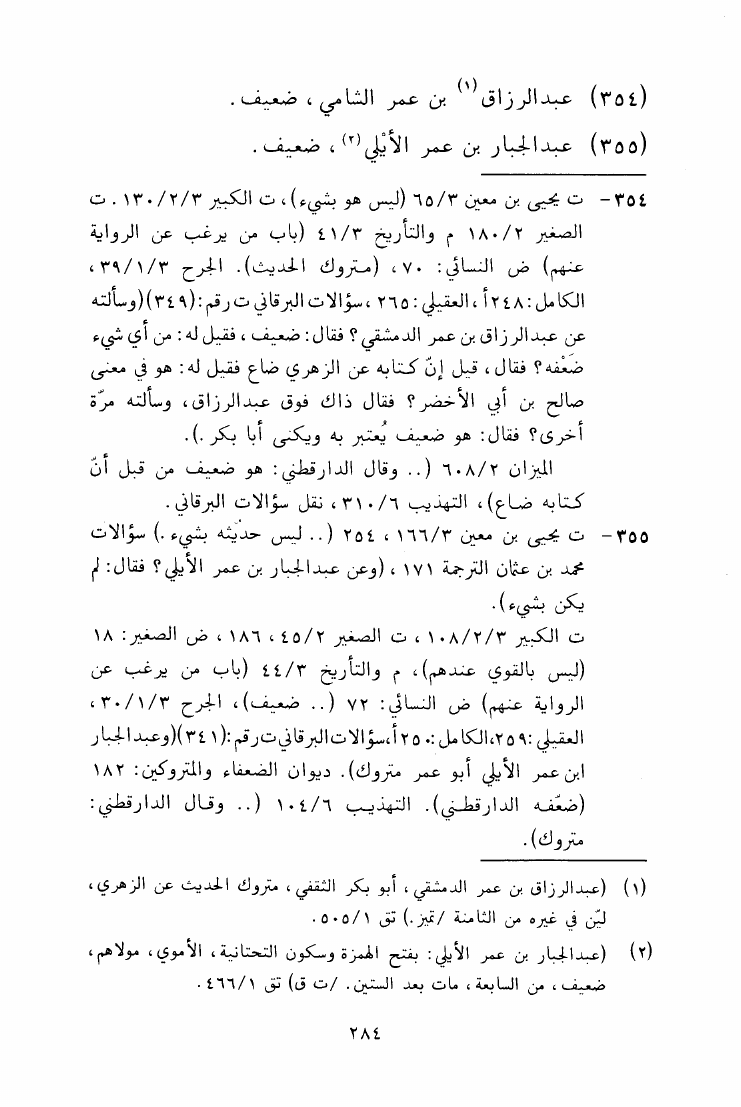 (٣٥٤) عبدالرزاق(١) بن عمر الشامي ، ضعيف .
(٣٥٥) عبدالجبار بن عمر الأيْلي(٢) ، ضعيف .
٣٥٤ - ت يحيى بن معين ٦٥/٣ (ليس هو بشيء) ، ت الكبير ١٣٠/٢/٣ . ت
الصغير ١٨٠/٢ م والتأريخ ٤١/٣ (باب من يرغب عن الرواية
عنهم) ض النسائي: ٧٠ ، (متروك الحديث). الجرح ٣٩/١/٣ ،
الكامل: ٢٤٨أ ، العقيلي: ٢٦٥ ، سؤالات البرقاني ت رقم: (٣٤٩)(وسألته
عن عبدالرزاق بن عمر الدمشقي؟ فقال: ضعيف ، فقيل له: من أي شيء
ضَعْفه؟ فقال ، قيل إنّ كتابه عن الزهري ضاع فقيل له: هو في معنى
صالح بن أبي الأخضر؟ فقال ذاك فوق عبدالرزاق، وسألته مرّة
أخرى؟ فقال: هو ضعيف يُعتبر به ويكنى أبا بكر .).
الميزان ٦٠٨/٢ (.. وقال الدارقطني: هو ضعيف من قبل أنّ
كتابه ضاع)، التهذيب ٣١٠/٦ ، نقل سؤالات البرقاني.
٣٥٥ - ت يحيى بن معين ١٦٦/٣ ، ٢٥٤ (.. ليس حديثه بشيء .) سؤالات
محمد بن عثمان الترجمة ١٧١ ، (وعن عبدالجبار بن عمر الأيلي؟ فقال: لم
يكن بشيء).
ت الكبير ١٠٨/٢/٣ ، ت الصغير ٤٥/٢ ، ١٨٦ ، ض الصغير: ١٨
(ليس بالقوي عندهم)، م والتأريخ ٤٤/٣ (باب من يرغب عن
الرواية عنهم) ض النسائي: ٧٢ (.. ضعيف)، الجرح ٣٠/١/٣ ،
العقيلي: ٢٥٩، الكامل: ٢٥٠أ، سؤالات البرقاني ت رقم: (٣٤١)(وعبدالجبار
ابن عمر الأيلي أبو عمر متروك). ديوان الضعفاء والمتروكين: ١٨٢
(ضعّفه الدارقطني). التهذيب ١٠٤/٦ (.. وقال الدارقطني:
متروك).
(١) (عبدالرزاق بن عمر الدمشقي ، أبو بكر الثقفي ، متروك الحديث عن الزهري ،
ليّن في غيره من الثامنة /تميز.) تق ٥٠٥/١.
(٢) (عبدالجبار بن عمر الأيلي: بفتح الهمزة وسكون التحتانية ، الأموي، مولاهم ،
ضعيف ، من السابعة ، مات بعد الستين. /ت ق) تق ٤٦٦/١ .
٢٨٤